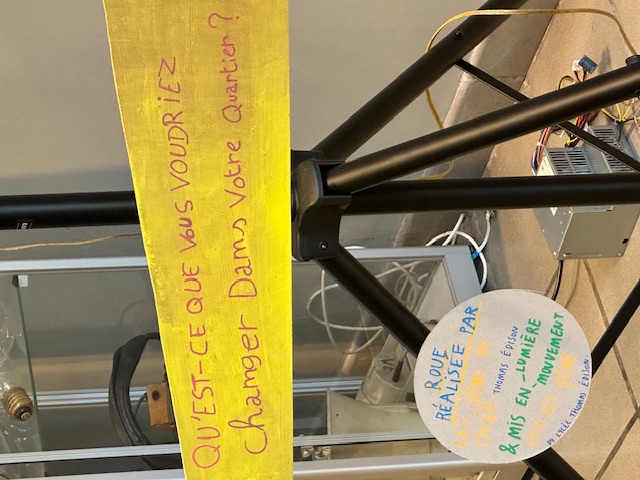 QU'EST-CE QUE VOUS VOUDRIEZ
Changer Dans Votre Quartier ?
ROUE
RÉALISÉE PAR
THOMAS ÉDISON
& MIS EN LUMIÈRE
MOUVEMENT
DU LYCÉE THOMAS ÉDISON